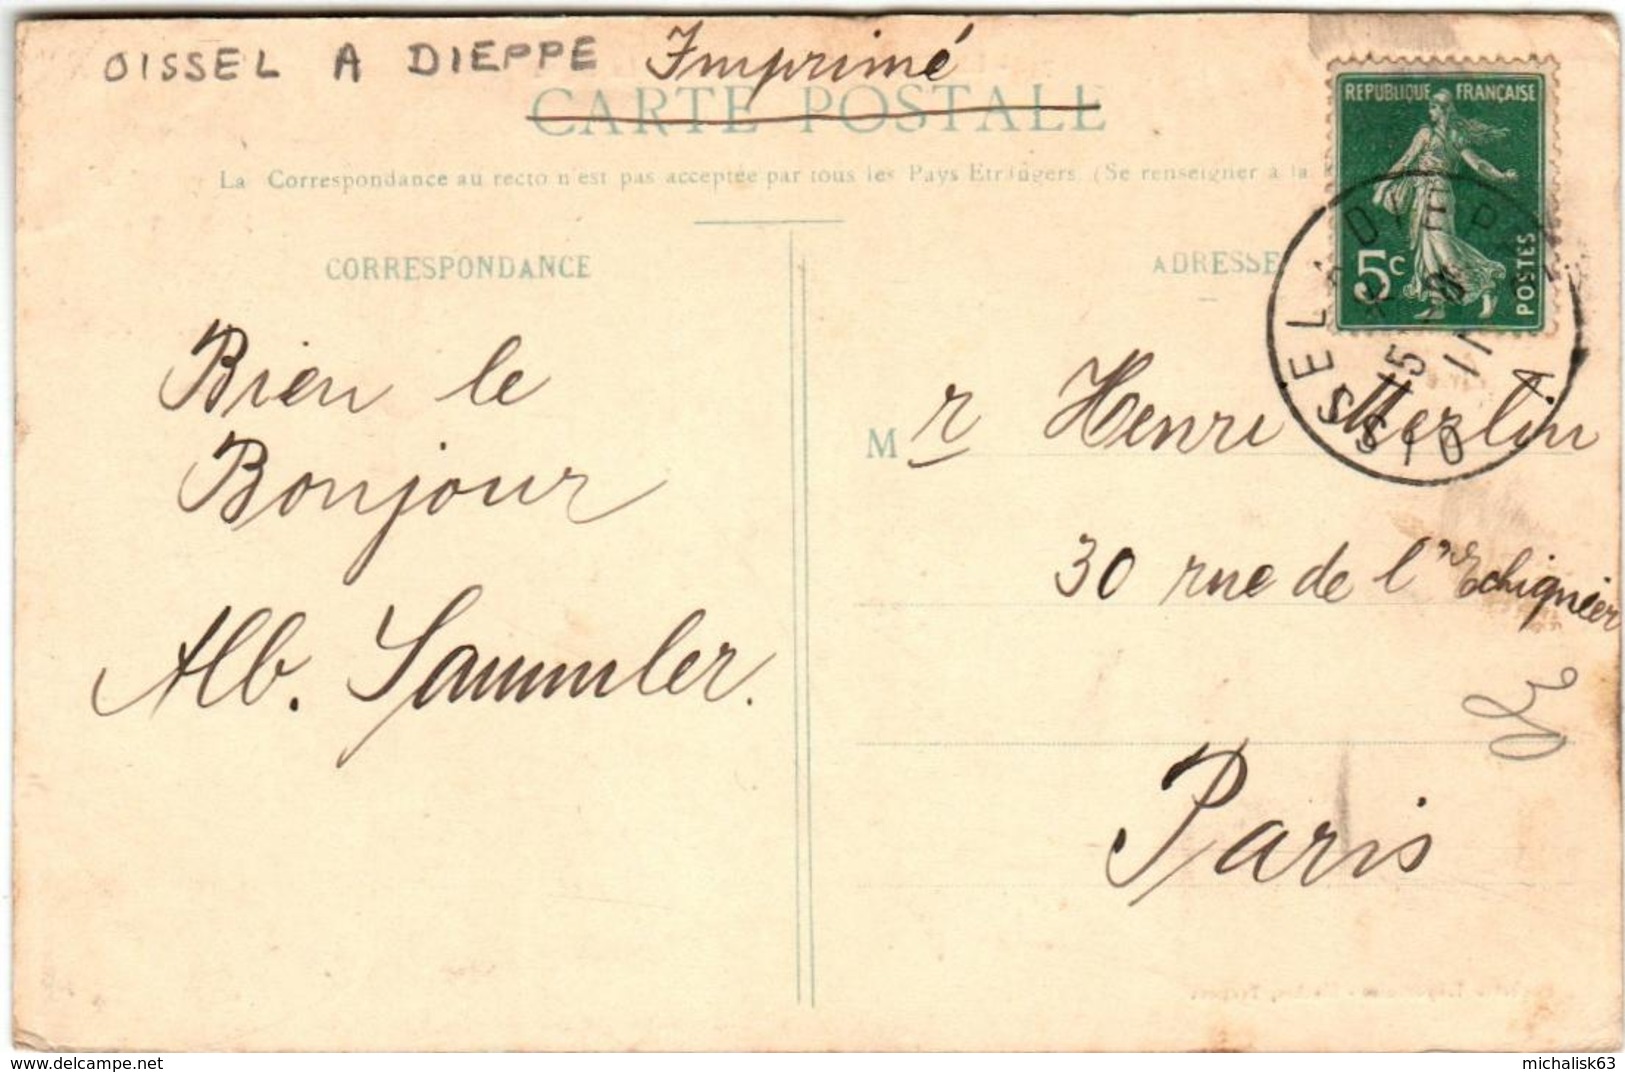 OISSEL A DIEPPE Imprimé
CARTE POSTALE
La Correspondance au recto n'est pas acceptée par tous les Pays Etrangers. (Se renseigner à la
REPUBLIQUE FRANÇAISE
5c
POSTES
OISSEL A DIEP
CORRESPONDANCE
ADRESSE
Bien le
Bonjour
Alb. Sammler.
Mr Henri Merlin
30 rue de l'Echiquier
Paris
www.delcampe.net
michalisk63